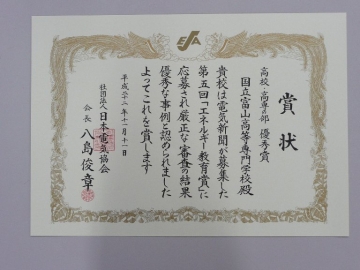 賞状
高校・高専の部 優秀賞
国立富山高等専門学校殿
貴校は電気新聞が募集した
第五回「エネルギー教育賞」に
応募され厳正な審査の結果
優秀な事例と認められました
よってこれを賞します
平成二十二年十一月十一日
社団法人 日本電気協会
会長 八島俊章